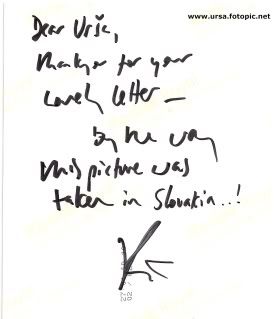 www.ursa.fotopic.net
Dear Urša,
Thankyou for your
lovely letter –
by the way
this picture was
taken in Slovakia..!